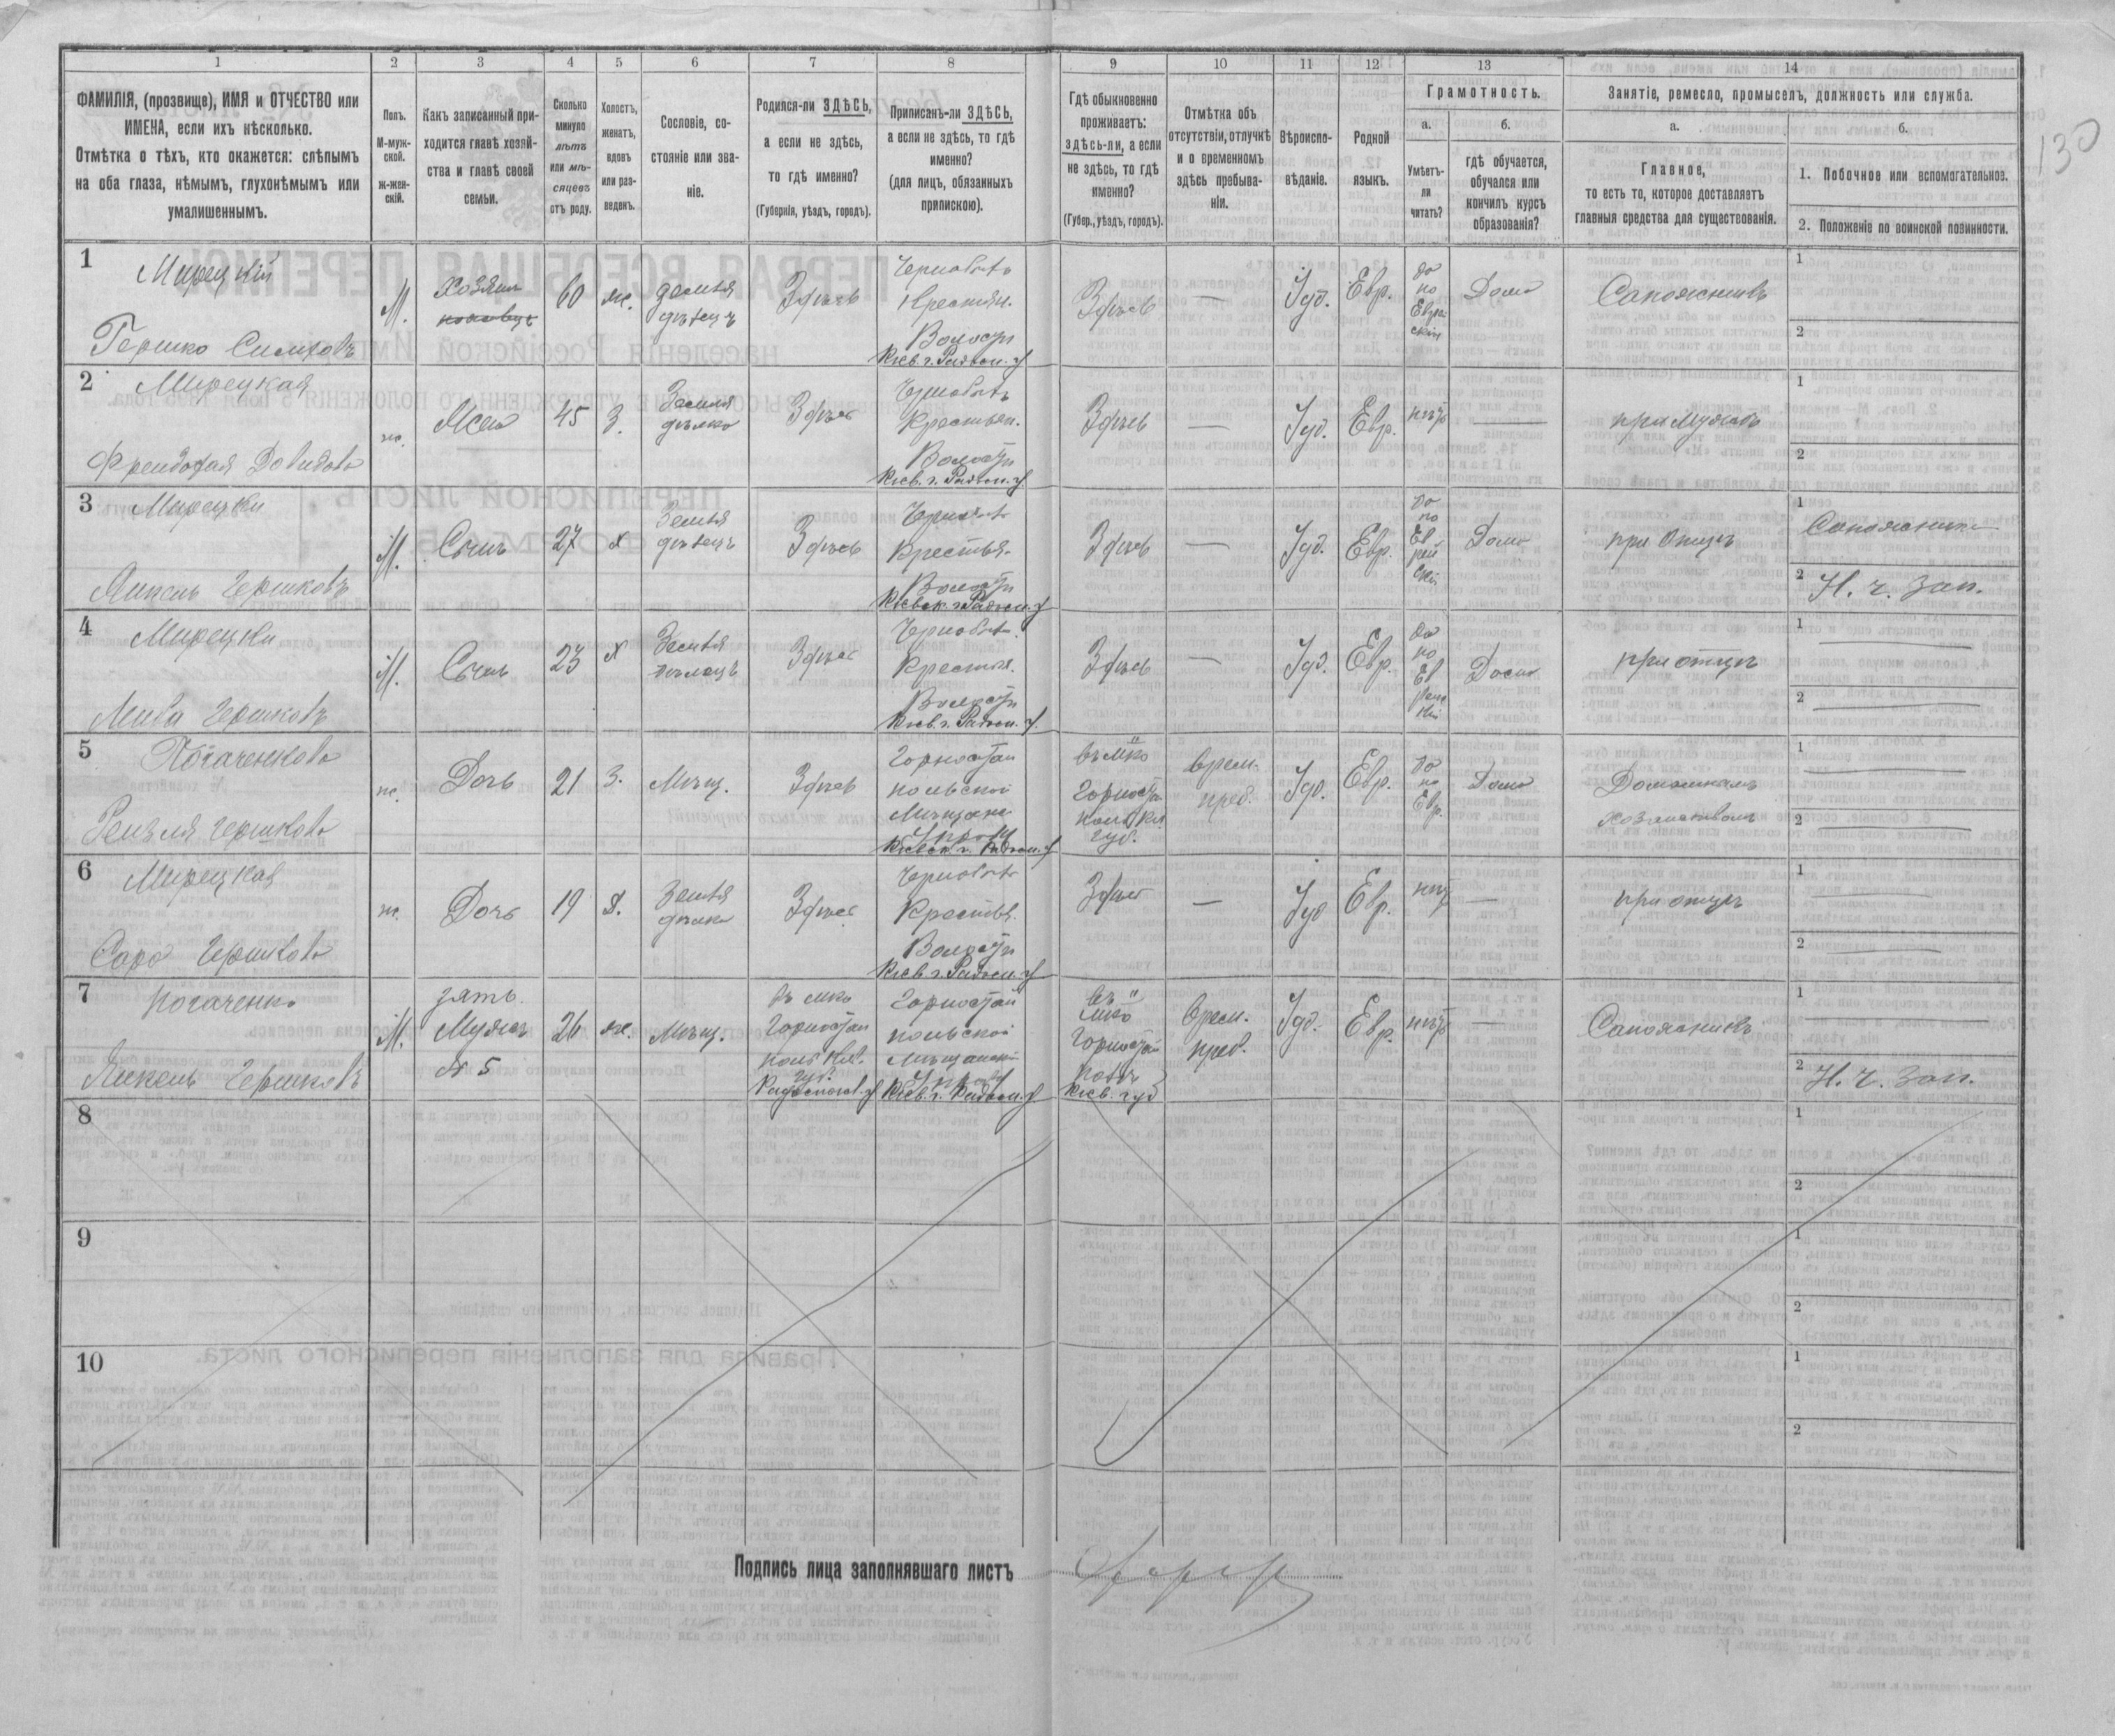 130
1 2 3 4 5 6 7 8 9 10 11 12 13 14
ФАМИЛІЯ, (прозвище), ИМЯ и ОТЧЕСТВО или
ИМЕНА, если ихъ нѣсколько.
Отмѣтка о тѣхъ, кто окажется: слѣпымъ
на оба глаза, нѣмымъ, глухонѣмымъ или
умалишеннымъ.
Полъ.
М-муж-
ской.
ж-жен-
скій.
Какъ записанный при-
ходится главѣ хозяй-
ства и главѣ своей
семьи.
Сколько
минуло
лѣтъ
или мѣ-
сяцевъ
отъ роду.
Холостъ,
женатъ,
вдовъ
или раз-
веденъ.
Сословіе, со-
стояніе или зва-
ніе.
Родился-ли ЗДѢСЬ,
а если не здѣсь,
то гдѣ именно?
(Губернія, уѣздъ, городъ).
Приписанъ-ли ЗДѢСЬ,
а если не здѣсь, то гдѣ
именно?
(для лицъ, обязанныхъ
припискою).
Гдѣ обыкновенно
проживаетъ:
здѣсь-ли, а если
не здѣсь, то гдѣ
именно?
(Губер., уѣздъ, городъ).
Отмѣтка объ
отсутствіи, отлучкѣ
и о временномъ
здѣсь пребыва-
ніи.
Вѣроиспо-
вѣданіе.
Родной
языкъ.
Грамотность.
а.
Умѣетъ-
ли
читать?
б.
гдѣ обучается,
обучался или
кончилъ курсъ
образованія?
Занятіе, ремесло, промыселъ, должность или служба.
а.
Главное,
то есть то, которое доставляетъ
главныя средства для существованія.
б.
1. Побочное или вспомогательное.
2. Положеніе по воинской повинности.
1
Мирецкій
Гершко Симховъ
М.
Хозяин
60
же.
Земледѣлецъ
Здѣсь
Чернобыль
Крестьян.
Волости
Кіев. г. Радом. у
Здѣсь
—
Іуд.
Евр.
да
по
Еврей
скій
Дома
Сапожникъ
1
2
2
Мирецкая
Довидова
ж.
Жена
45
З.
Земле
дѣлка
Здѣсь
Чернобыль
Крестьян.
Волости
Кіев. г. Радом. у.
Здѣсь
—
Іуд.
Евр.
нѣтъ
—
при Мужѣ
1
2
3
Мирецки
Янкель Гершковъ
М.
Сынъ
27
х
Здѣсь
Крестья.
Волости
Кіевск. г. Радом. у
Здѣсь
—
Іуд.
Евр.
да
по
Ев
рей
скій
Дома
при Отцѣ
1 Сапожник
2 Н. ч. Зап.
4
Мирецки
Гершковъ
М.
Сынъ
23
х
Здѣсь
Крестья.
Волости
Кіев. г. Радом. у.
Здѣсь
—
Іуд.
Евр.
да
по
Ев
рейс
кій
Дома
при отцѣ
1
2
5
Погаченкова
Рейзля Гершкова
ж.
Дочь
21
З.
Мѣщ.
Здѣсь
Горностай
польской
Мѣщанс
Управы
Кіевск. г. Радом. у
въ м-ко
Горностай
поль Кіе.
губ.
Врем.
преб.
Іуд.
Евр.
да
по
Евр.
Дома
Домашнимъ
хозяйствомъ
1
2
6
Мирецкая
Сара Гершкова
ж.
Дочь
19
д.
Земле
дѣлка
Здѣсь
Крестья.
Волости
Кіев. г. Радом. у
Здѣсь
—
Іуд
Евр.
нѣт
—
при отцѣ
1
2
7
погаченко
Янкель Гершковъ
М.
зять.
Мужъ
№ 5
26
же.
Мѣщ.
въ м-ко
Горностай
поль Кіев.
губ.
Радомысл. у
Горностай
польской
Мѣщанской
Управы
Кіев. г. Радом. у
въ
м-ко
Горностай
поль
Кіев. губ
Врем.
преб.
Іуд.
Евр.
нѣтъ
—
Сапожникъ
1
2 Н. ч. Зап.
8
1
2
9
1
2
10
1
2
Подпись лица заполнявшаго листъ